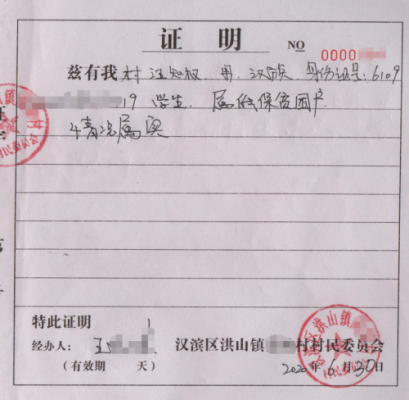 证 明
NO 0000
兹有我村汪知权 男 汉族 身份证号:6109
19 学生, 属低保贫困户
情况属实
特此证明
经办人: 王
汉滨区洪山镇 村村民委员会
(有效期 天)
2020年6月30日